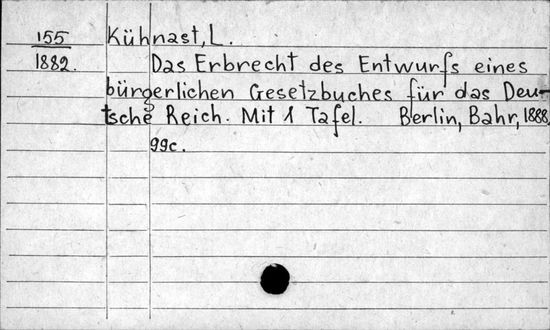 155 Kühnast, L.
1882. Das Erbrecht des Entwurfs eines
bürgerlichen Gesetzbuches für das Deu-
tsche Reich. Mit 1 Tafel. Berlin, Bahr, 1888.
99c.